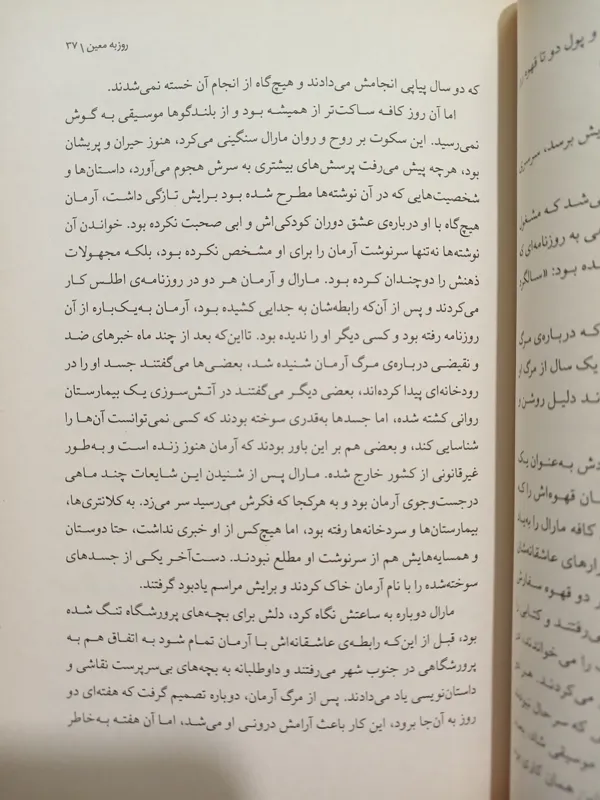 روزبه معین \ ۳۷
که دو سال پیاپی انجامش می‌دادند و هیچ‌گاه از انجام آن خسته نمی‌شدند.
اما آن روز کافه ساکت‌تر از همیشه بود و از بلندگوها موسیقی به گوش
نمی‌رسید. این سکوت بر روح و روان مارال سنگینی می‌کرد، هنوز حیران و پریشان
بود، هرچه پیش می‌رفت پرسش‌های بیشتری به سرش هجوم می‌آورد، داستان‌ها و
شخصیت‌هایی که در آن نوشته‌ها مطرح شده بود برایش تازگی داشت، آرمان
هیچ‌گاه با او درباره‌ی عشق دوران کودکی‌اش و ابی صحبت نکرده بود. خواندن آن
نوشته‌ها نه‌تنها سرنوشت آرمان را برای او مشخص نکرده بود، بلکه مجهولات
ذهنش را دوچندان کرده بود. مارال و آرمان هر دو در روزنامه‌ی اطلس کار
می‌کردند و پس از آن‌که رابطه‌شان به جدایی کشیده بود، آرمان به‌یک‌باره از آن
روزنامه رفته بود و کسی دیگر او را ندیده بود. تااین‌که بعد از چند ماه خبرهای ضد
و نقیضی درباره‌ی مرگ آرمان شنیده شد، بعضی‌ها می‌گفتند جسد او را در
رودخانه‌ای پیدا کرده‌اند، بعضی دیگر می‌گفتند در آتش‌سوزی یک بیمارستان
روانی کشته شده، اما جسدها به‌قدری سوخته بودند که کسی نمی‌توانست آن‌ها را
شناسایی کند، و بعضی هم بر این باور بودند که آرمان هنوز زنده است و به‌طور
غیرقانونی از کشور خارج شده. مارال پس از شنیدن این شایعات چند ماهی
درجست‌وجوی آرمان بود و به هرکجا که فکرش می‌رسید سر می‌زد. به کلانتری‌ها،
بیمارستان‌ها و سردخانه‌ها رفته بود، اما هیچ‌کس از او خبری نداشت، حتا دوستان
و همسایه‌هایش هم از سرنوشت او مطلع نبودند. دست‌آخر یکی از جسدهای
سوخته‌شده را با نام آرمان خاک کردند و برایش مراسم یادبود گرفتند.
مارال دوباره به ساعتش نگاه کرد، دلش برای بچه‌های پرورشگاه تنگ شده
بود، قبل از این‌که رابطه‌ی عاشقانه‌اش با آرمان تمام شود به اتفاق هم به
پرورشگاهی در جنوب شهر می‌رفتند و داوطلبانه به بچه‌های بی‌سرپرست نقاشی و
داستان‌نویسی یاد می‌دادند. پس از مرگ آرمان، دوباره تصمیم گرفت که هفته‌ای دو
روز به آن‌جا برود، این کار باعث آرامش درونی او می‌شد، اما آن هفته به‌خاطر
و پول دو تا قهوه
یش برسد، سرسری
ی‌شد که مشغول
ی به روزنامه‌ای
ده بود: «سالگرد
که درباره‌ی مرگ
یک سال از مرگ او
ند دلیل روشن و
دش به‌عنوان یک
ان قهوه‌اش را
کافه مارال را به‌یاد
رارهای عاشقانه‌شان
ر دو قهوه سفارش
ی‌رفتند و کتابی
را می‌خواندند،
ی‌کردند. هر دو
که سر حال بودند
موسیقی شاد
همان کاری بود